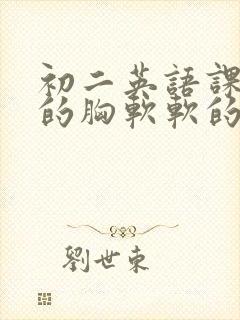 初二英語課
的胸軟軟的
劉世東